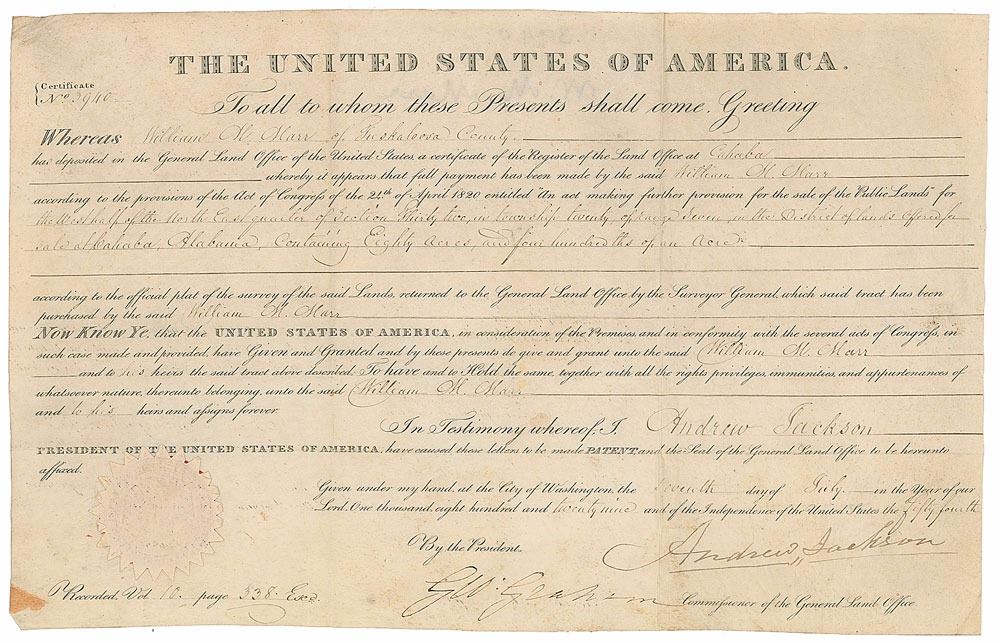 THE UNITED STATES OF AMERICA.
Certificate
No 3940
To all to whom these Presents shall come, Greeting
Whereas William M. Marr of Tuskaloosa County
has deposited in the General Land Office of the United States, a certificate of the Register of the Land Office at Cahaba
whereby it appears that full payment has been made by the said William M. Marr
according to the provisions of the Act of Congress of the 24th of April 1820 entitled "An act making further provision for the sale of the Public Lands" for
the West half of the North East quarter of Section Thirty two, in township twenty, of range Seven, in the District of lands offered for
sale at Cahaba, Alabama, Containing Eighty Acres, and four hundredths of an Acre
according to the official plat of the survey of the said Lands, returned to the General Land Office by the Surveyor General, which said tract has been
purchased by the said William M. Marr
Now Know Ye, that the UNITED STATES OF AMERICA, in consideration of the Premises, and in conformity with the several acts of Congress, in
such case made and provided, have Given and Granted and by these presents do give and grant unto the said William M. Marr
and to his heirs the said tract above described, To have and to Hold the same, together with all the rights privileges, immunities, and appurtenances of
whatsoever nature, thereunto belonging, unto the said William M. Marr
and to his heirs and assigns forever.
In Testimony whereof, I, Andrew Jackson
PRESIDENT OF THE UNITED STATES OF AMERICA, have caused these letters to be made PATENT and the Seal of the General Land Office to be hereunto
affixed.
Given under my hand, at the City of Washington, the seventh day of July in the Year of our
Lord, One thousand, eight hundred and twenty nine and of the Independence of the United States the fifty fourth
By the President,
Andrew Jackson
Recorded, Vol 10. page 338. Exd.
GW. Graham Commissioner of the General Land Office